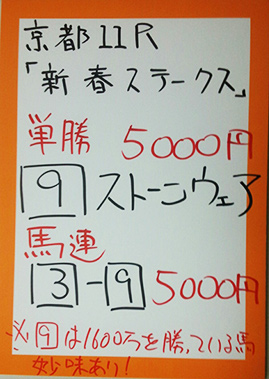 京都11R
「新春ステークス」
単勝 5000円
9 ストーンウェア
馬連
3-9 5000円
※9は1600万を勝っている馬
妙味あり!